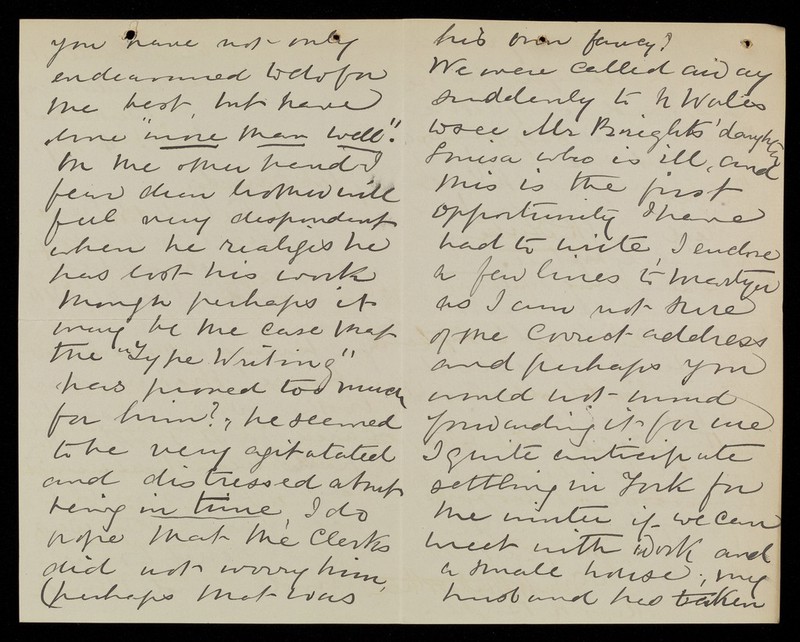 you have not only
endeavoured to do for
the best, but have
done "more than well".
On the other hand I
fear dear brother will
feel very despondent
when he realizes he
has lost his work
though perhaps it
may be the case that
the "Type Writing"
has proved too much
for him?, he seemed
to be very agitatated
and distressed about
being in time, I do
hope that the Clerks
did not worry him,
(perhaps that was
his own fancy?
We were called away
suddenly to N Wales
to see Mr Brights' daughter
Louisa who is ill, and
this is the first
opportunity I have
had to write, I enclose
a few lines to Martyn
as I am not sure
of the Correct address
and perhaps you
would not mind
forwarding it for me
I quite anticipate
settling in York for
the winter if we can
meet with work and
a small house; my
husband has taken